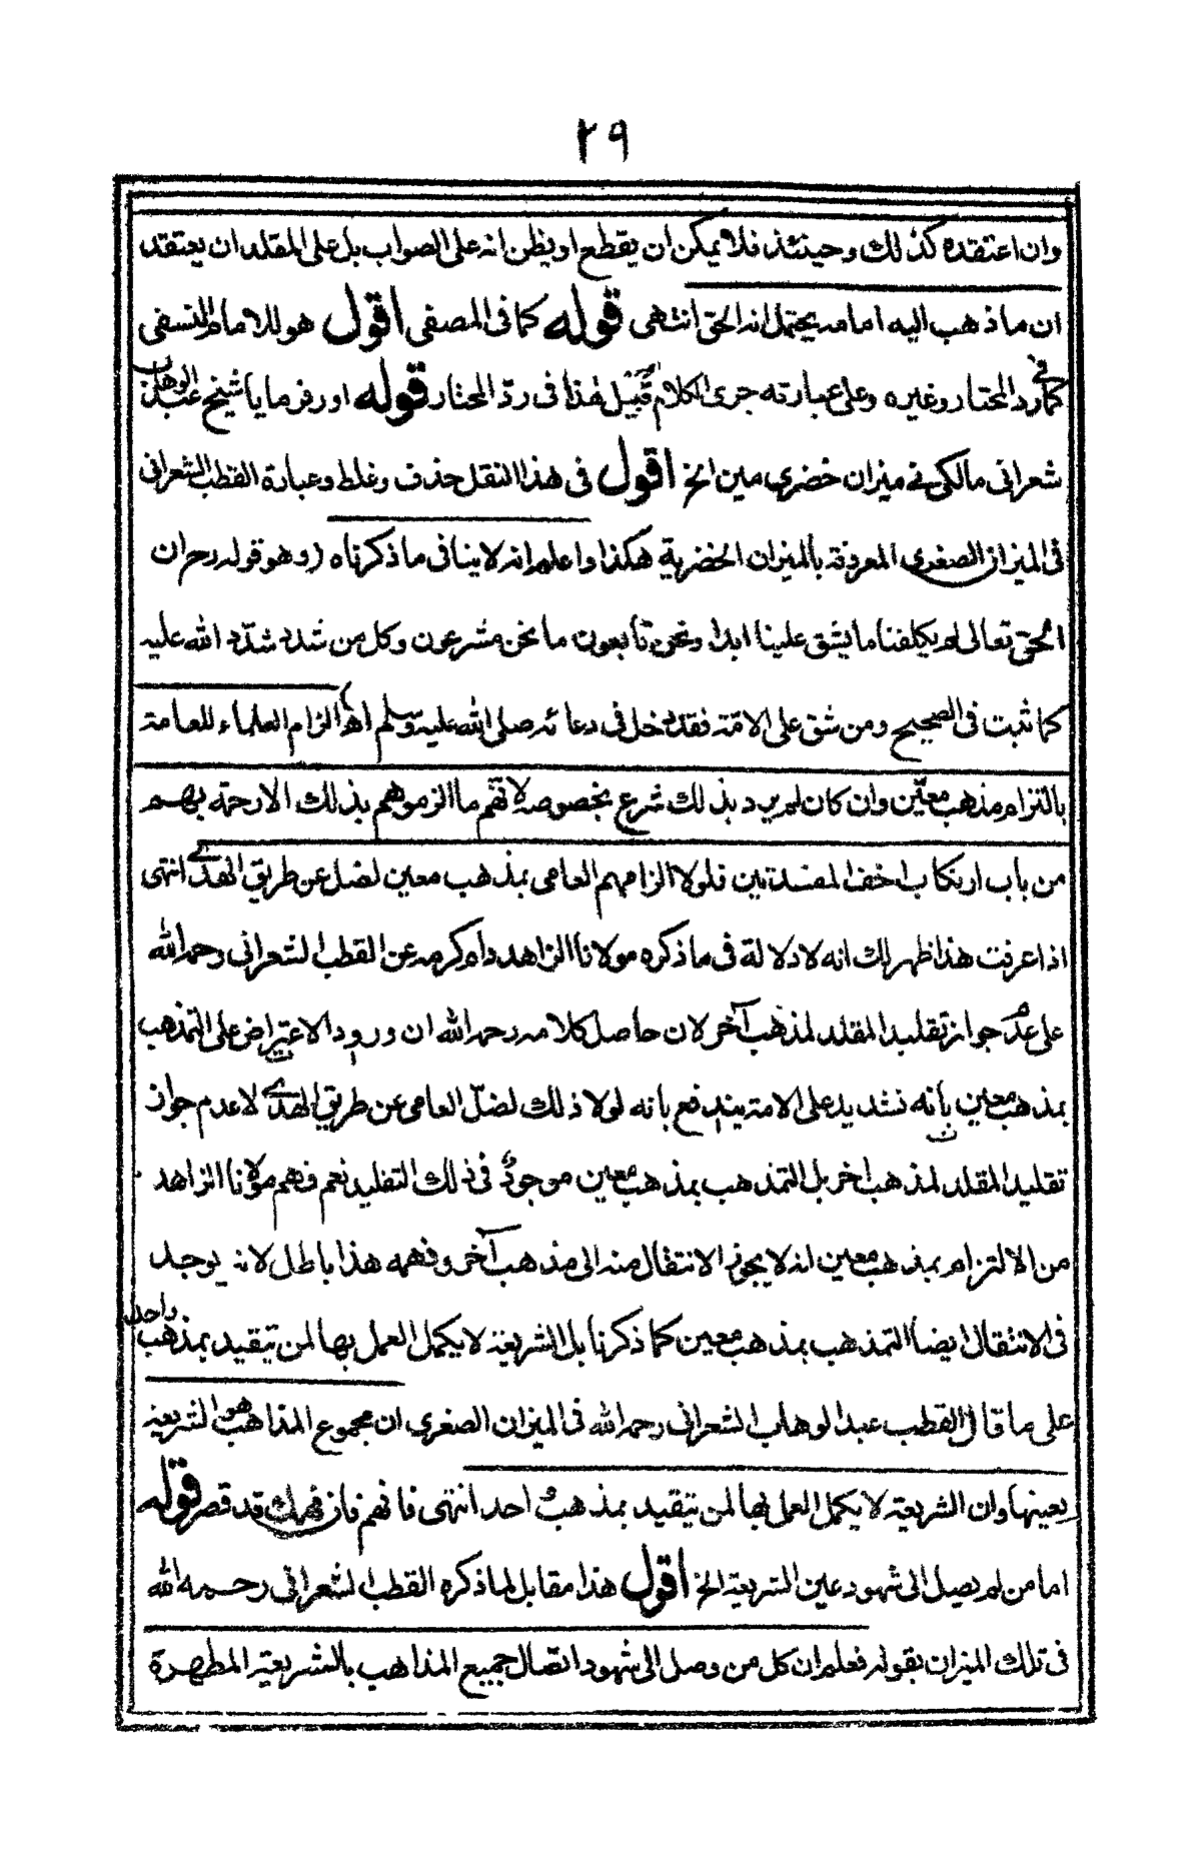 ٢٩
وان اعتقده كذلك وحينئذ فلا يمكن ان يقطع او يظن انه على الصواب بل على المقلد ان يعتقد
ان ما ذهب اليه امامه يحتمل انه الحق انتهى قوله كما فى المصفى اقول هو للامام النسفى
كما فى رد المحتار وغيره وعلى عبارته جرى الكلام قبيل هذا فى ردّ المحتار قوله اور فرمايا شيخ عبد الوهاب
شعرانى مالكى نے ميزان خضرى مين الخ اقول فى هذا النقل حذف وغلط وعبارة القطب الشعرانى
فى الميزان الصغرى المعروفة بالميزان الخضرية هكذا واعلم انه لا ينافى ما ذكرناه (وهو قوله رح ان
الحق تعالى لم يكلفنا ما يشق علينا ابدا ونحن تابعون ما نحن مشرعون وكل من شدد شدّد الله عليه
كما ثبت فى الصحيح ومن شق على الامّة فقد دخل فى دعائه صلى الله عليه وسلم اھ) الزام العلماء للعامة
بالتزام مذهب معيّن وان كان لم يرد بذلك شرع بخصوصه لانهم ما الزموهم بذلك الا رحمة بهم
من باب ارتكاب اخف المفسدتين فلولا الزامهم العامى بمذهب معين لضل عن طريق الهدى انتهى
اذا عرفت هذا ظهر لك انه لا دلالة فى ما ذكره مولانا الزاهد دام كرمه عن القطب الشعرانى رحمه الله
على عدم جواز تقليد المقلد لمذهب آخر لان حاصل كلامه رحمه الله ان ورود الاعتراض على التمذهب
بمذهب معين بانه تشديد على الامة يندفع بانه لولا ذلك لضلّ العامى عن طريق الهدى لا عدم جواز
تقليد المقلد لمذهب اخر بل التمذهب بمذهب معين موجود فى ذلك التقليد نعم فهم مولانا الزاهد
من الالتزام بمذهب معين انه لا يجوز الانتقال منه الى مذهب آخر وفهمه هذا باطل لانه يوجد
فى الانتقال ايضا التمذهب بمذهب معين كما ذكرنا بل الشريعة لا يكمل العمل بها لمن تيقيد بمذهب واحد
على ما قال القطب عبد الوهاب الشعرانى رحمه الله فى الميزان الصغرى ان مجموع المذاهب هو الشريعة
بعينها وان الشريعة لا يكمل العمل بها لمن تيقيد بمذهب احد انتهى فافهم فان فهمك قد قصر قوله
اما من لم يصل الى شهود عين الشريعة الخ اقول هذا مقابل لما ذكره القطب الشعرانى رحمه الله
فى تلك الميزان بقوله فعلم ان كل من وصل الى شهود اتصال جميع المذاهب بالشريعة المطهرة